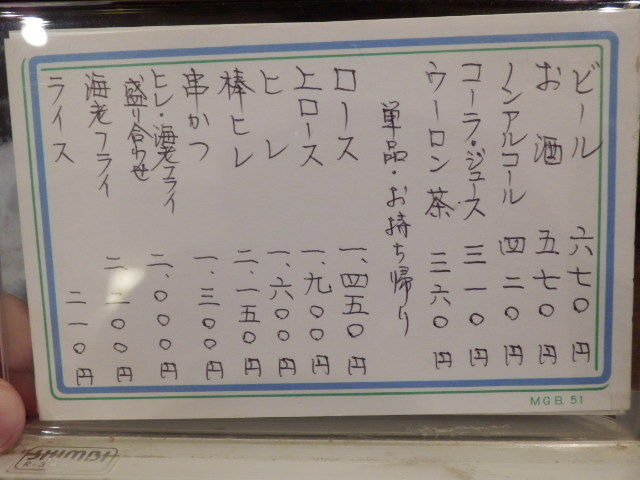 ビール 六七〇円
お酒 五七〇円
ノンアルコール 四二〇円
コーラ・ジュース 三一〇円
ウーロン茶 三六〇円
単品・お持ち帰り
ロース 一、四五〇円
上ロース 一、九〇〇円
ヒレ 一、六〇〇円
棒ヒレ 二、一五〇円
串かつ 一、三〇〇円
ヒレ・海老フライ
盛り合わせ 二、〇〇〇円
海老フライ 二、二〇〇円
ライス 二一〇円
MGB. 51
SHIMBI